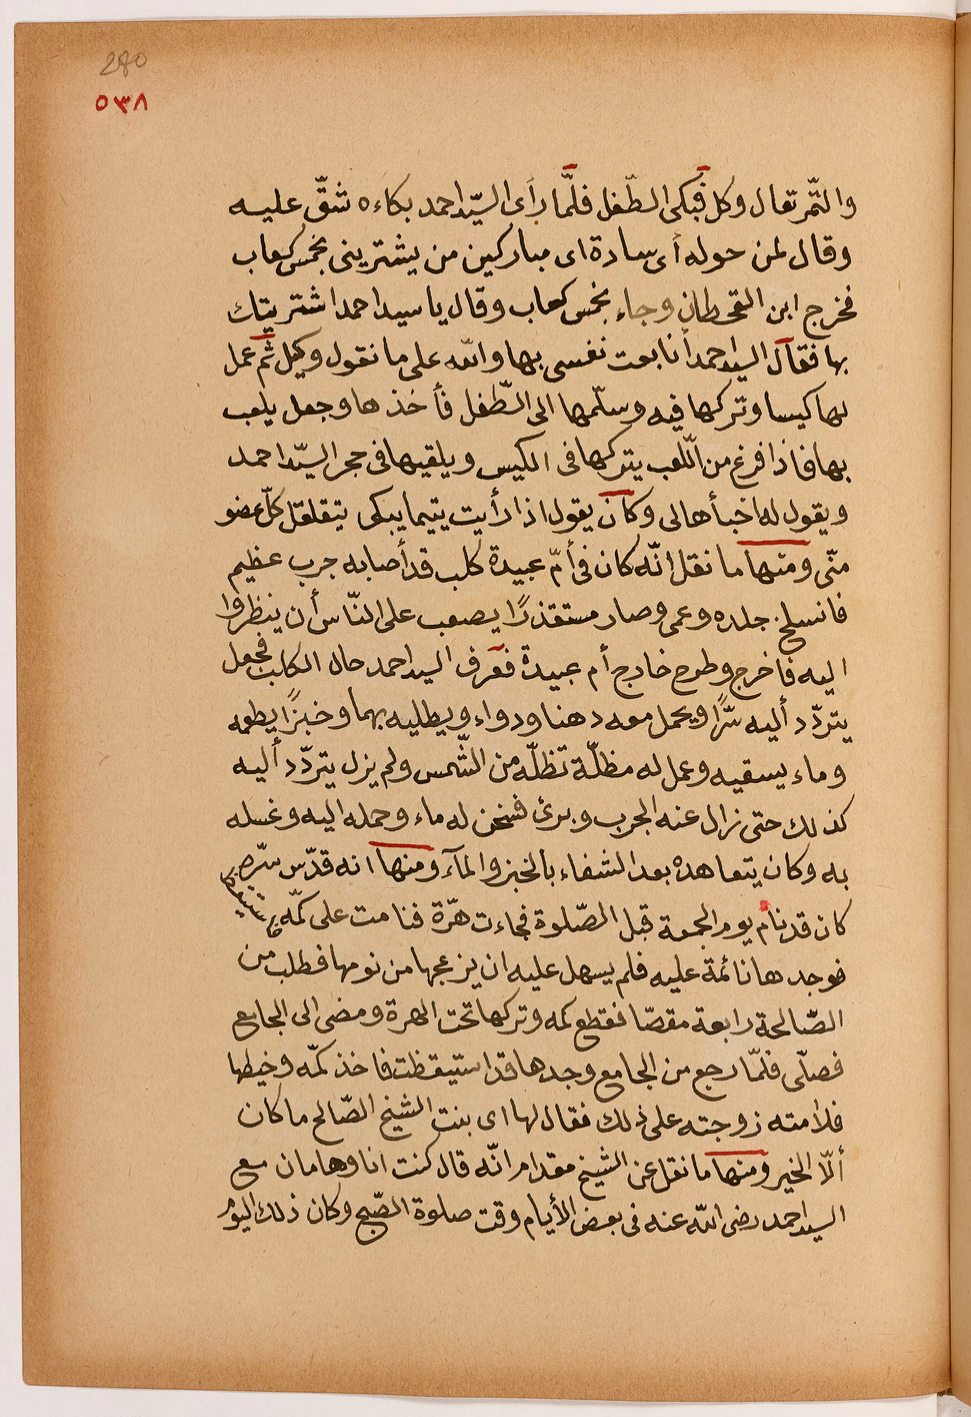 280
٥٣٨
والتّمر تعال وكل فبكى الطّفل فلمّا رأى السيّد احمد بكاءه شقّ عليه
وقال لمن حوله أى سادة اى مباركين من يشترينى بخمس كعاب
فخرج ابن القحطان وجاء بخمس كعاب وقال يا سيد احمد اشتريتك
بها فقال السيد احمد أنا بعت نفسى بها والله على ما نقول وكيل ثم عمل
بها كيسا وتركها فيه وسلّمها الى الطّفل فأخذها وجعل يلعب
بها فاذا فرغ من اللّعب يتركها فى الكيس ويلقيها فى حجر السيّد احمد
ويقول له اخبأها لى وكان يقول اذا رأيت يتيما يبكى يتقلقل كلّ عضو
منّى ومنها ما نقل انّه كان فى أمّ عبيدة كلب قد أصابه جرب عظيم
فانسلخ جلده وعمى وصار مستقذرًا يصعب على النّاس أن ينظروا
اليه فاخرج وطرح خارج أم عبيدة فعرف السيد احمد حال الكلب فجعل
يتردّد أليه سرًّا ويحمل معه دهنا ودواء ويطليه بهما وخبزًا يطعمه
وماء يسقيه وعمل له مظلّة تظلّه من الشّمس ولم يزل يتردّد أليه
كذلك حتى زال عنه الجرب وبرئ فسخن له ماء وحمله اليه وغسله
به وكان يتعاهده بعد الشفاء بالخبز والمآء ومنها انه قدّس سرّه
كان قد نام يوم الجمعة قبل الصّلوة فجاءت هرّة فنامت على كمّه فاستيقظ
فوجدها نائمة عليه فلم يسهل عليه ان يزعجها من نومها فطلب من
الصّالحة رابعة مقصّا فقطع كمه وتركها تحت الهرة ومضى الى الجامع
فصلّى فلمّا رجع من الجامع وجدها قد استيقظت فاخذ كمّه وخيطها
فلامته زوجته على ذلك فقال لها اى بنت الشيخ الصّالح ما كان
ألّا الخير ومنها ما نقل عن الشيخ مقدام انّه قال كنت انا وهامان مع
السيد احمد رضى الله عنه فى بعض الأيام وقت صلوة الصّبح وكان ذلك اليوم